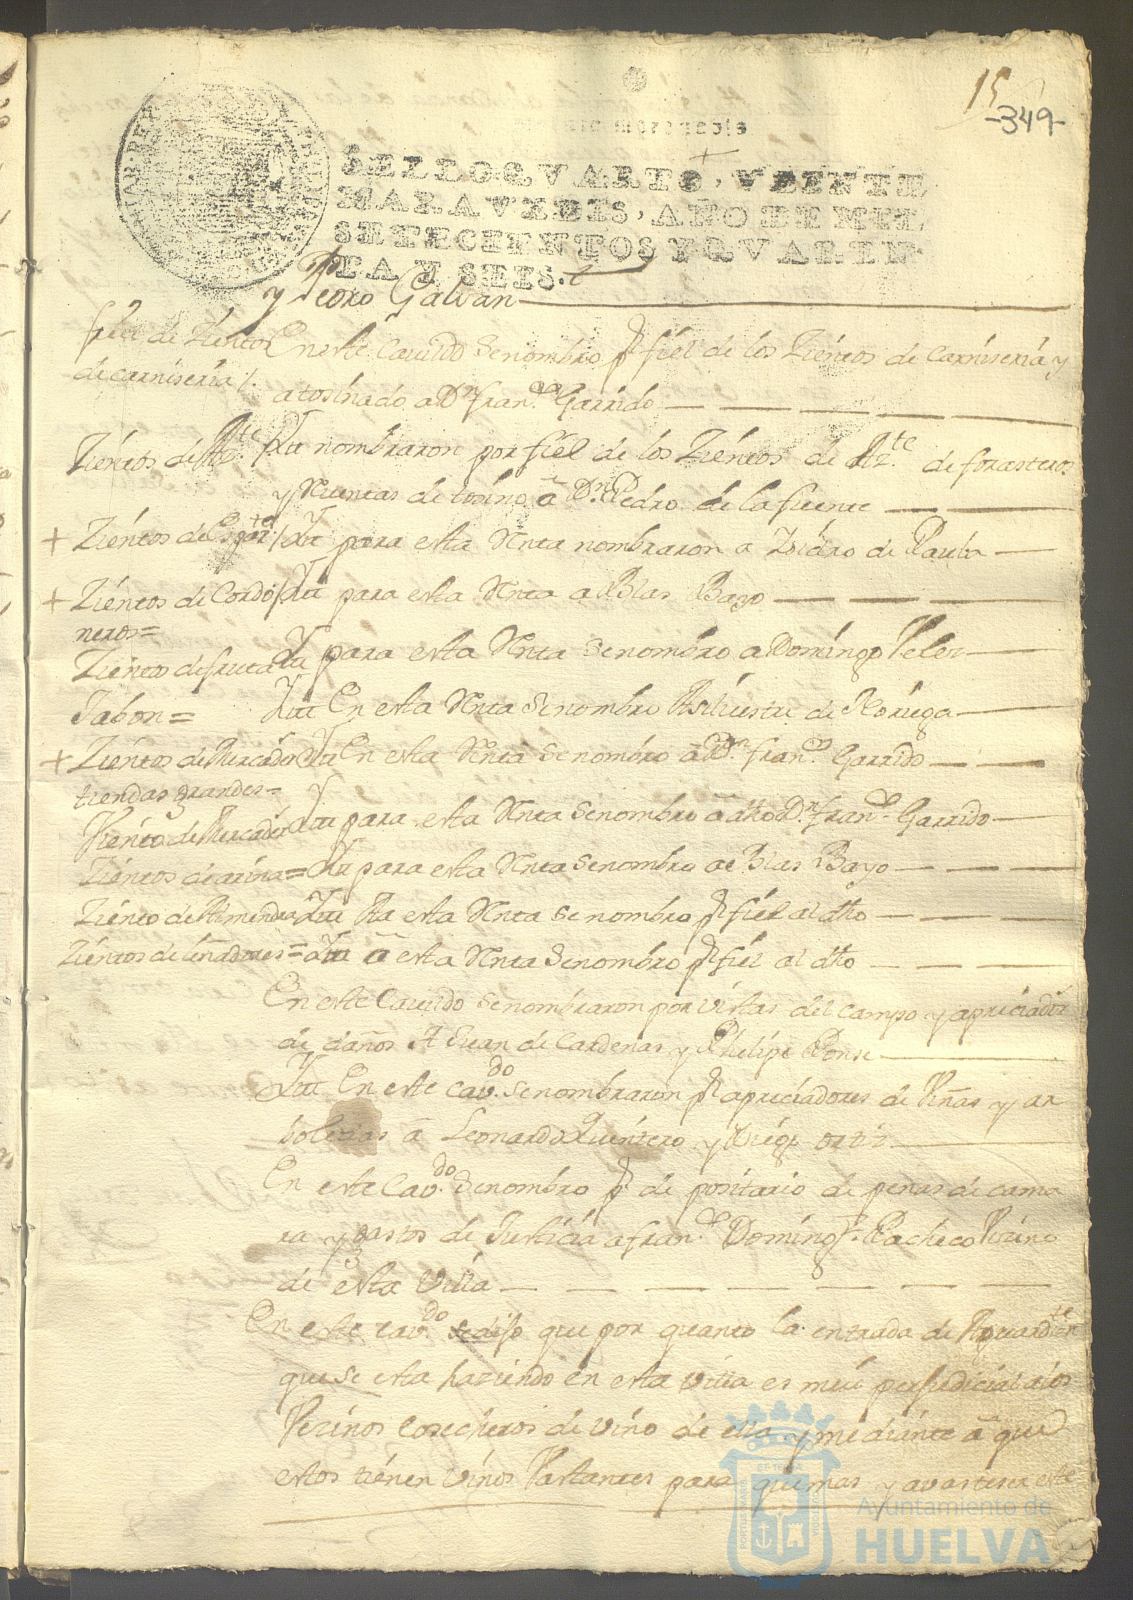 15
-349-
SELLO QVARTO, VEINTE
MARAVEDIS, AÑO DE MIL
SETECIENTOS Y QVAREN-
TA Y SEIS.
y Pedro Galvan
fiel de Zientos
de carniseria
En este Cavildo se nombro Pr fiel de los Zientos de Carniseria y
atosinado a Dn Franco Garrido
Zientos de Azte
Ytt nombraron por fiel de los Zientos de Azte de forasteros
y Rentas de tosino a Dn Pedro de la fuente
+ Zientos de Esparte
Ytt para esta Renta nombraron a Isidro de Paula
+ Zientos de Cordo
neros=
Ytt para esta Renta a Blas Bayo
Ziento de fruta
Ytt para esta Renta se nombro a Domingo Velez
Jabon=
Ytt En esta Renta se nombro A Silvestre de Noriega
+ Zientos de Mercader
tiendas grandes=
Ytt En esta Renta se nombro a Dn Franco Garrido
Viento de Mercader
Ytt para esta Renta se nombro a dho Dn Franco Garrido
Zientos de arina=
Ytt para esta Renta se nombro a Blas Bayo
Ziento de Almendra
Ytt Pa esta Renta se nombro Pr fiel al dho
Zientos de leñadores=
Ytt a esta Renta se nombro Pr fiel al dho
En este Cavildo se nombraron por vistas del campo y apreciador
de daños A Juan de Cardenas y Phelipe Ponse
Ytt En este cavdo se nombraron Pr apreciadores de Viñas y ar
boledas a Leonardo Quintero y Diego ortiz
En este Cavdo se nombro Pr de positario de penas de cama
ra y gastos de Justicia a Franco Domingo Pacheco Vezino
de esta Villa
En este cavdo se dijo que por quanto la entrada de Aguardte
que se esta haziendo en esta Villa es mui perjudicial a los
Vezinos cosecheros de vino de ella y mediante a que
estos tienen vinos Vastantes para quemar y avasteser este
Ayuntamiento de
HUELVA